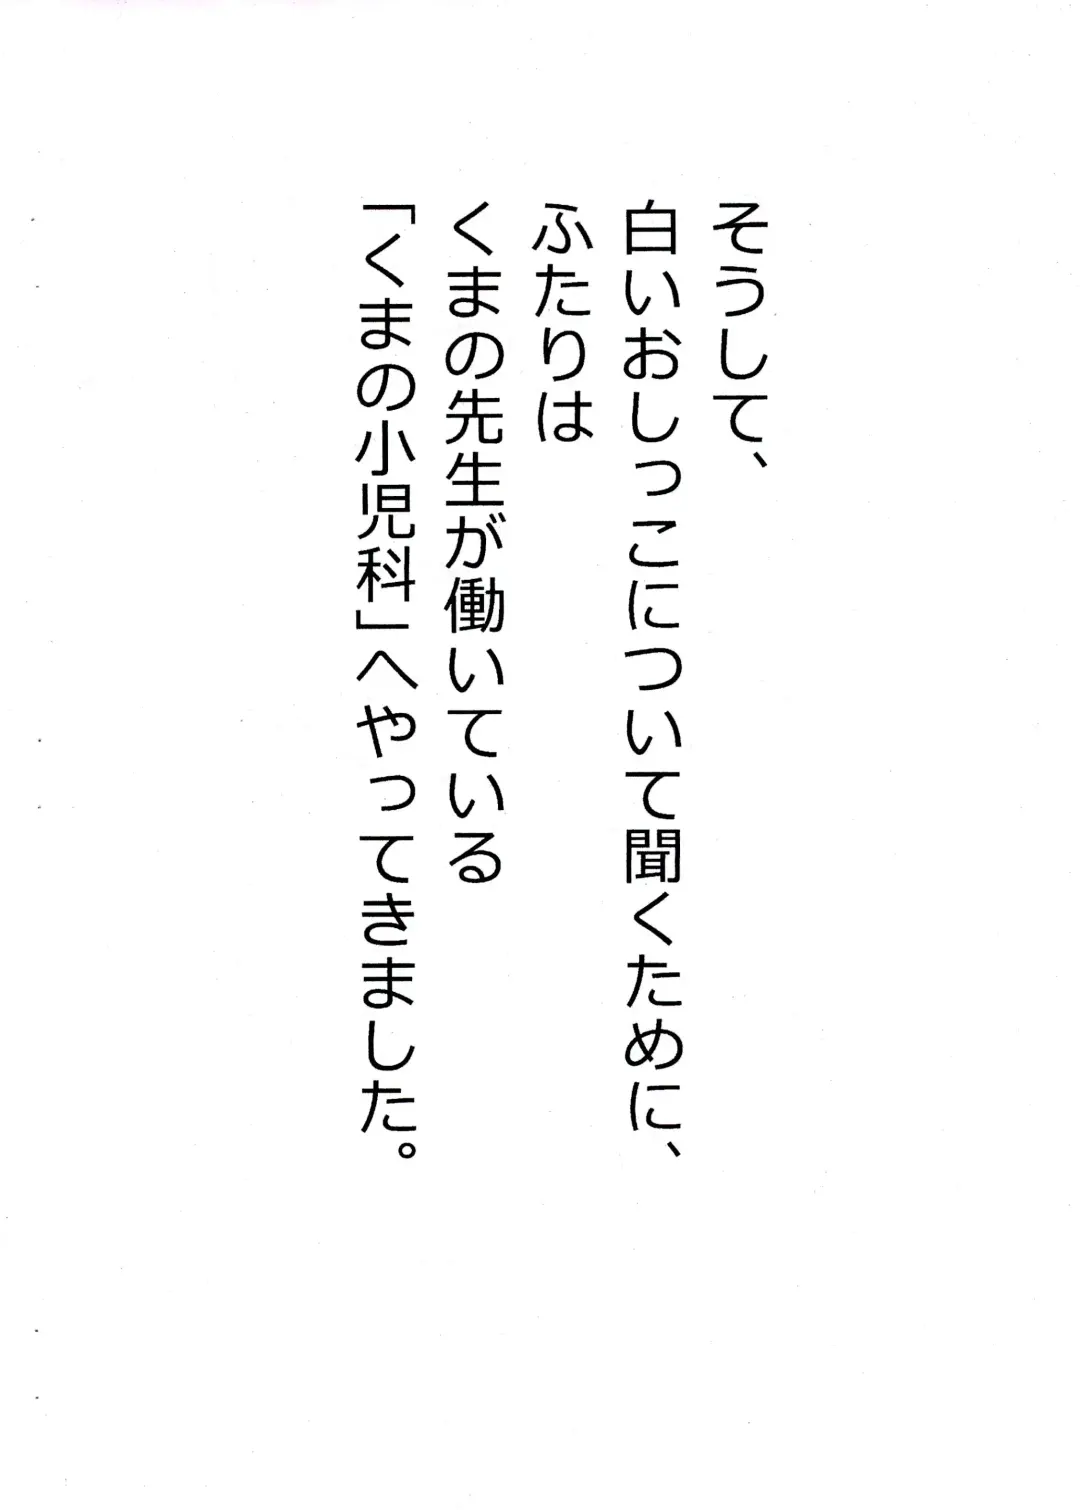 そうして、
白いおしっこについて聞くために、
ふたりは
くまの先生が働いている
「くまの小児科」へやってきました。